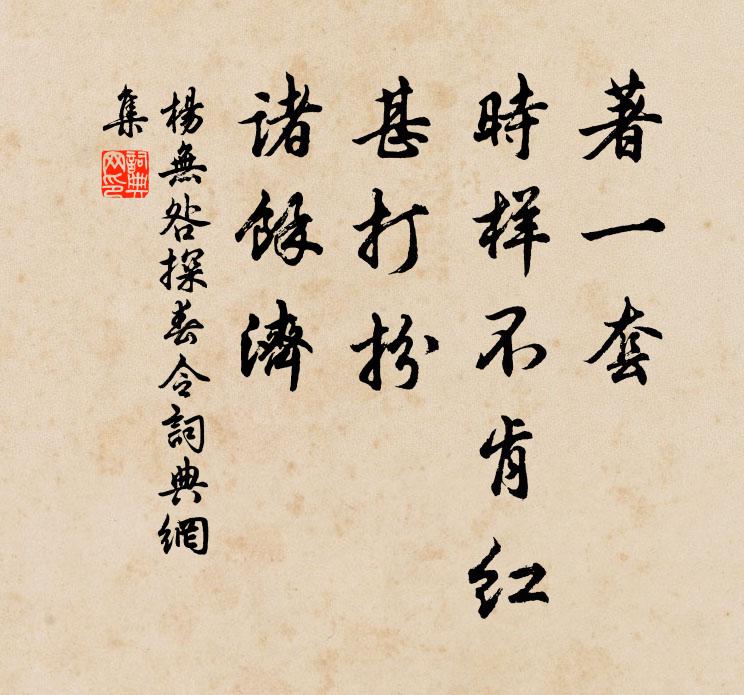 著一套
時样不肯红
甚打扮
诸餘濟
楊無咎探春令詞典網
集
詞典网印